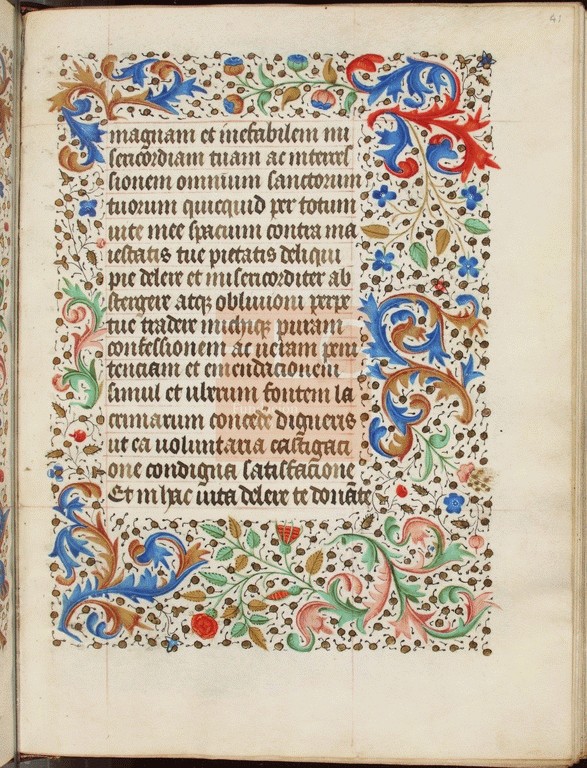 41
magnam et inefabilem mi
sericordiam tuam ac interces
sionem omnium sanctorum
tuorum quicquid per totum
uite mee spacium contra ma
iestatis tue pietatis deliqui
pie delere et misericorditer ab
stergere atqȝ obliuioni perpe
tue tradere michiqȝ puram
confessionem ac ueram peni
tenciam et emendationem
simul et uberum fontem la
crimarum concede digneris
ut ea uoluntaria castigati
one condigna satisfatione
Et in hac iuita delere te donate